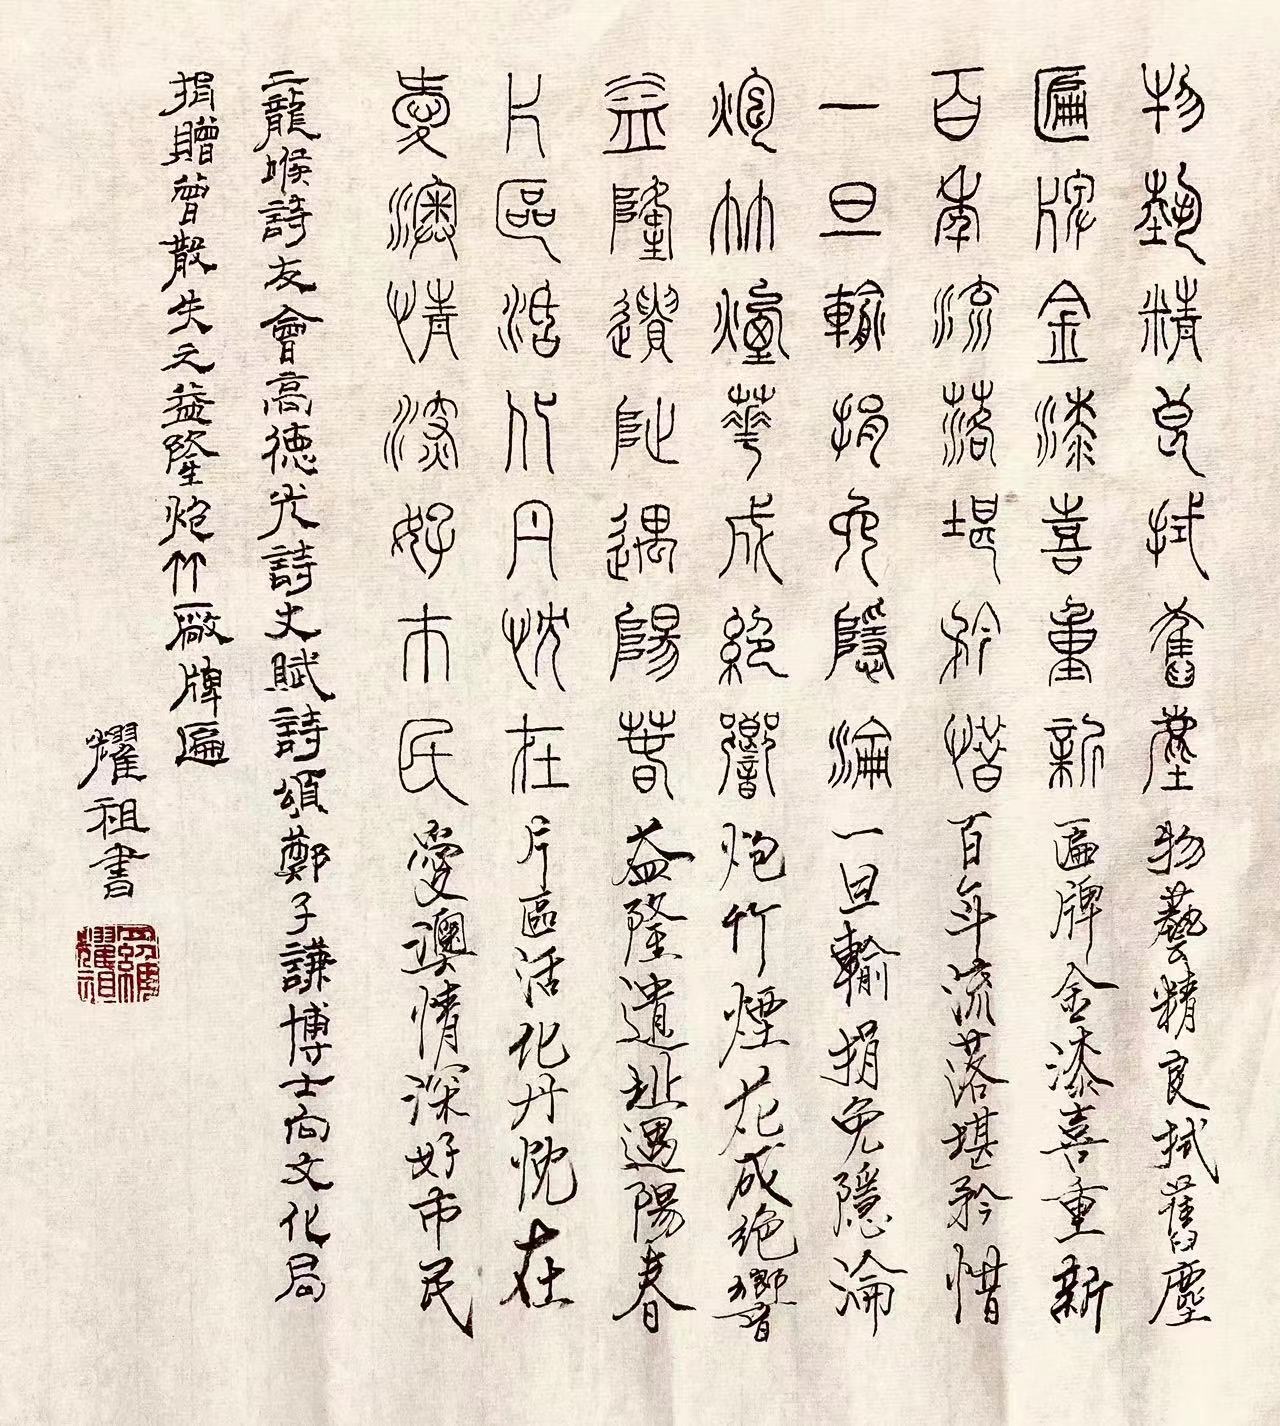 物藝精良拭舊塵物藝精良拭舊塵
匾牌金漆喜重新匾牌金漆喜重新
百年流落堪矜惜百年流落堪矜惜
一旦輸捐免隱淪一旦輸捐免隱淪
炮竹煙華成絕響炮竹煙花成絕響
益隆遺阯遇陽春益隆遺址遇陽春
片區活化丹忱在片區活化丹忱在
愛澳情深好市民愛澳情深好市民
二龍喉詩友會高德光詩丈賦詩頌鄭子謙博士向文化局
捐贈曾散失之益隆炮竹廠牌匾
耀祖書
羅耀祖